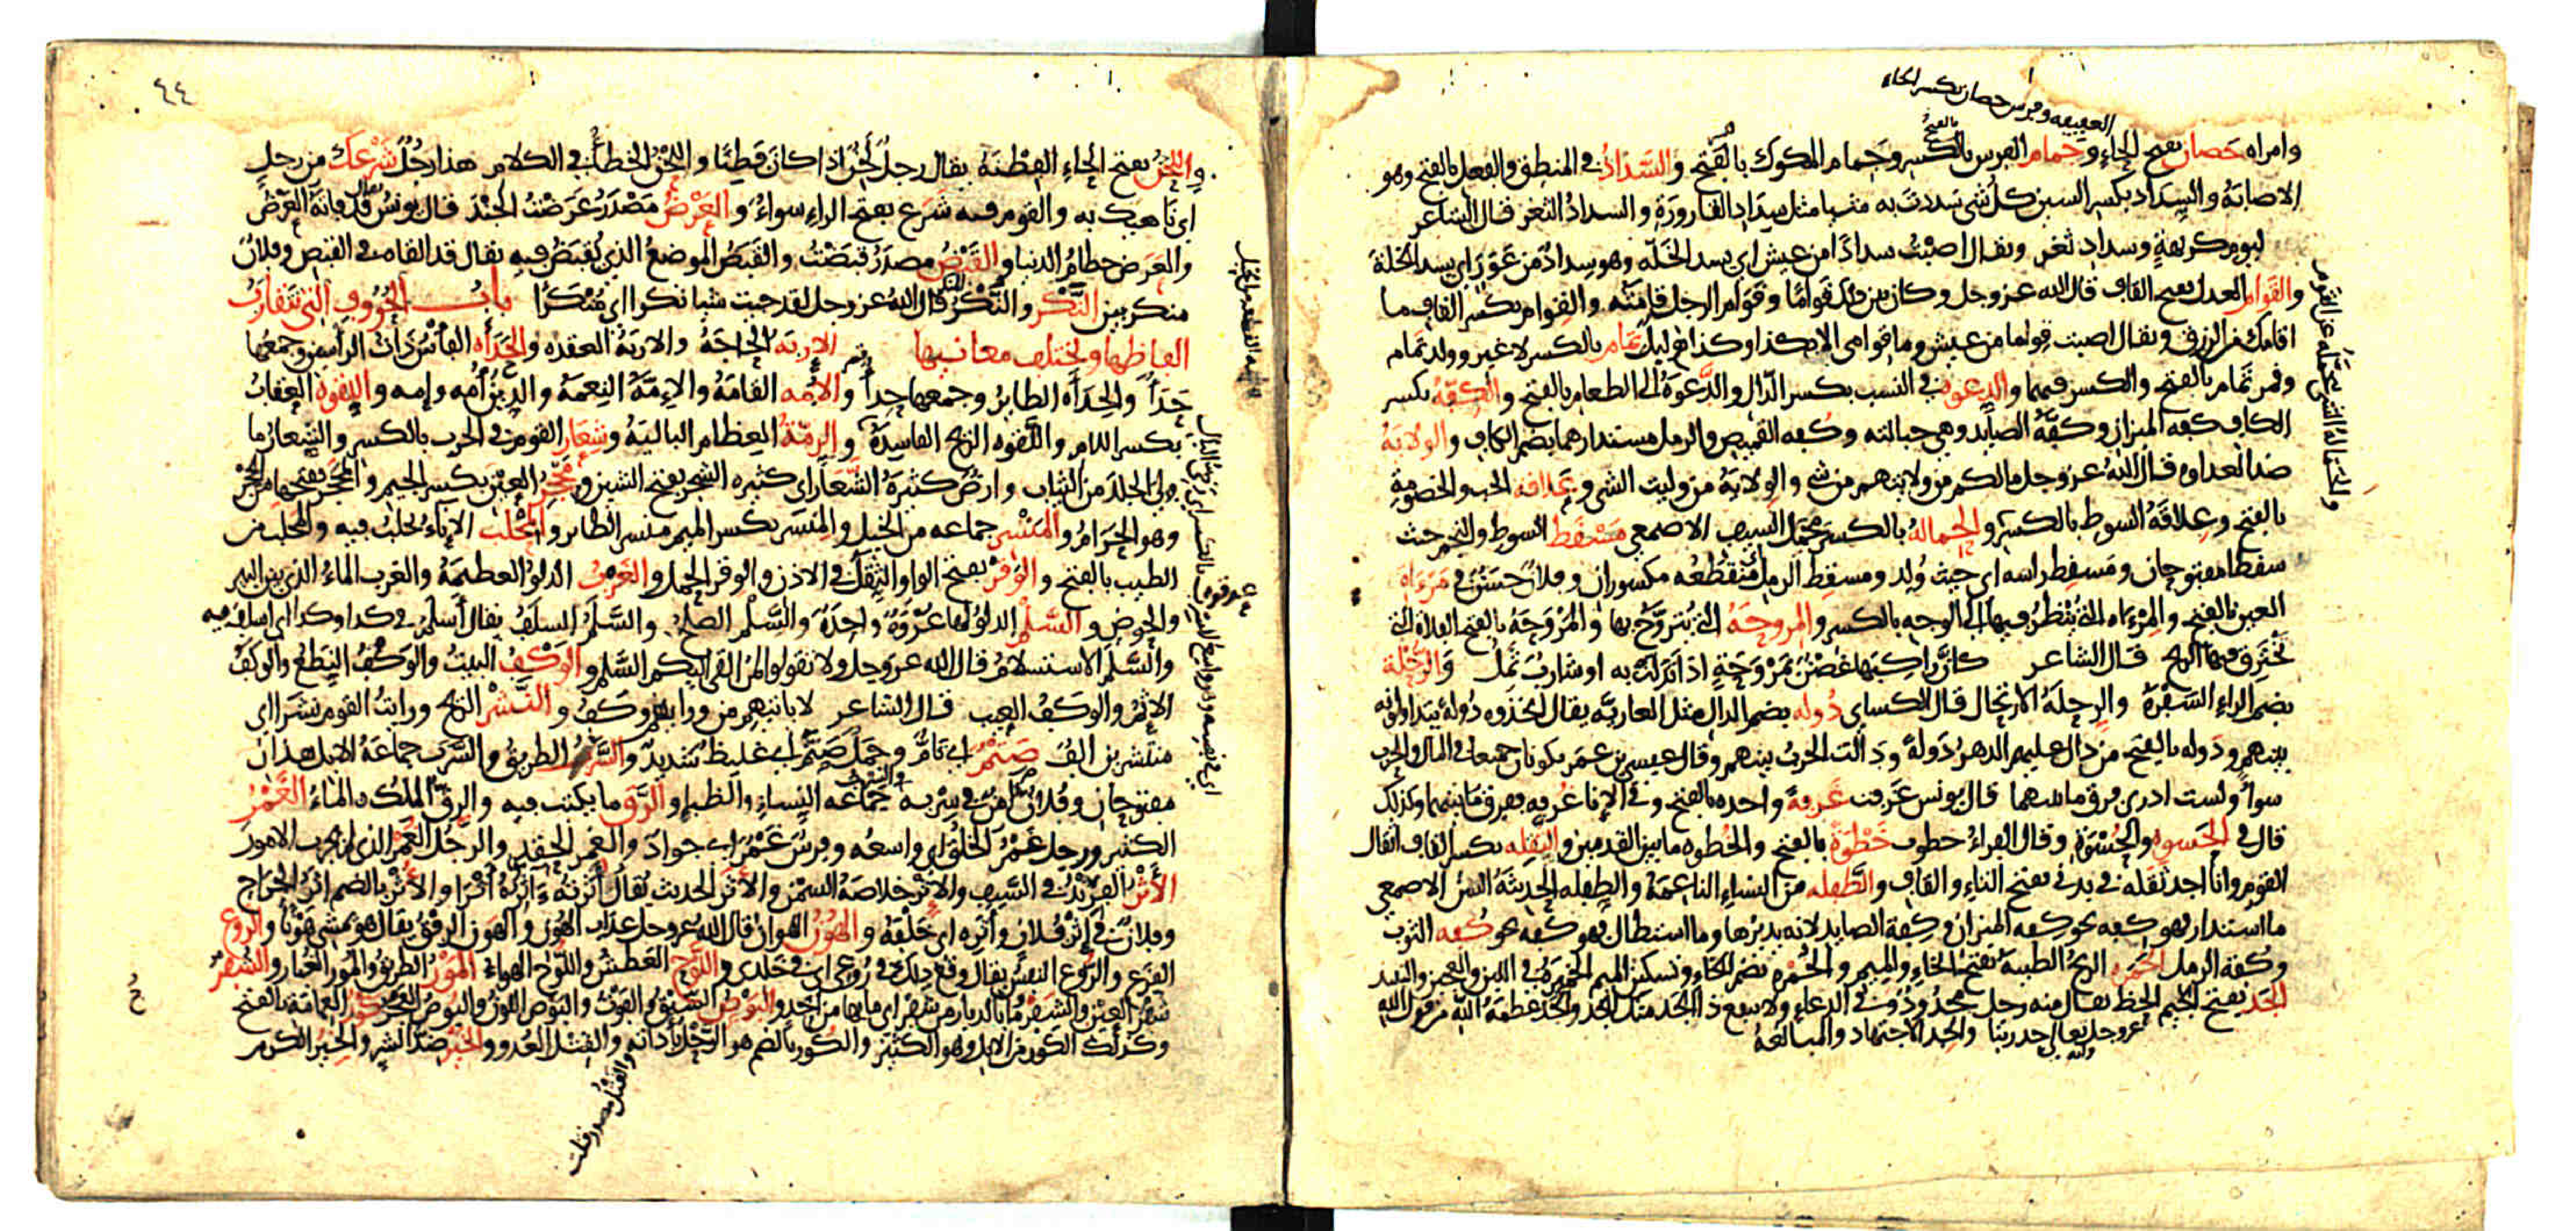 العفيفه وفرس حصان بكسر الحاء
وامراه حصان بفتح الحاء وجمام الفرس بالفتح وجمام المكوك بالضم والسداد في المنطق والفعل بالفتح وهو
الاصابة والسداد بكسر السين كل شي سددت به شيا مثل سداد القارورة والسداد الثغر قال الشاعر
ليوم كريهة وسداد ثغر ويقال اصبت سدادا من عيش اي يسد الخلة وهو سداد من عوز اي يسد الخلة
والقوام العدل بفتح القاف قال الله عز وجل وكان بين ذلك قواما وقوام الرجل قامته والقوام بكسر القاف ما
اقامك من الرزق ويقال اصبت قواما من عيش وما قوامي الا بكذا وكذا وليل تمام بالكسر لا غير وولد تمام
وقمر تمام بالفتح والكسر فيهما والدعوة في النسب بكسر الدال والدعوة الى الطعام بالفتح والكفه بكسر
الكاف كفه الميزان وكفة الصايد وهي حبالته وكفه القميص والرمل مستدارهما بضم الكاف والولاية
ضد العداوه قال الله عز وجل مالكم من ولايتهم من شي والولاية من وليت الشي وعلاقه الحب والخصومة
بالفتح وعلاقة السوط بالكسر والحمالة بالكسر محمل السيف الاصمعي مسقط السوط والنجم حيث
سقطا مفتوحان ومسقط راسه اي حيث ولد ومسقط الرمل منقطعه مكسوران وفلان حسن في مرءاة
العين بالفتح والمرءاه التي ينظر فيها الى الوجه بالكسر والمروحة التي يتروح بها والمروحة بالفتح الفلاة التي
تخترق فيها الريح قال الشاعر كان راكبها غصن بمروحة اذا تدلت به او شارب ثمل والرحلة
بضم الراء السفرة والرحلة الارتحال قال الكساي دوله بضم الدال مثل العارية يقال اتخذوه دولة يتداولونه
بينهم ودوله بالفتح من دال عليهم الدهر دولة ودالت الحرب بينهم وقال عيسى بن عمر يكونان جميعا في المال والحرب
سواء ولست ادري فرق ما بينهما قال يونس غرفت غرفة واحده بالفتح وفي الإناء غرفه ففرق ما بينهما وكذلك
قال في الحسوه والحسوة وقال الفراء خطوت خطوة بالفتح والخطوه ما بين القدمين والثقله بكسر القاف اثقال
القوم وانا اجد ثقله في بدني بفتح الثاء والقاف والطفله من النساء الناعمة والطفله الحديثة السن الاصمعي
ما استدار فهو كفه نحو كفه الميزان وكفة الصايد لانه يديرها وما استطال فهو كفه نحو كفه الثوب
وكفة الرمل الخمره الريح الطيبة بفتح الخاء والميم والخمرة بضم الخاء وتسكين الميم الخمرة في اللبن والعجين والنبيذ
الجد بفتح الجيم الحظ يقال منه رجل مجدود وفي الدعاء ولا ينفع ذا الجد منك الجد والجد عظمة الله من قول الله
عز وجل وانه تعالى جد ربنا والجد الاجتهاد والمبالغة
٤٤
واللحن بفتح الحاء الفطنة يقال رجل لحن اذا كان فطنا واللحن الخطأ في الكلام هذا رجل شرعك من رجل
اي ناهيك به والقوم فيه شرع بفتح الراء سواء والعرض مصدر عرضت الجند قال يونس يقال قد فاته العرض
والعرض حطام الدنيا والقبض مصدر قبضت والقبض الموضع الذي يقبض فيه يقال قد القاه في القبض وفلان
منكر بين النكر والنكر المنكر قال الله عز وجل لقد جيت شيا نكرا اي منكرا باب الحروف التي تتقارب
الفاظها وتختلف معانيها الإربة الحاجة والاربة العقده والحدأه الفأس ذات الرأسين وجمعها
حدأ والحدأه الطاير وجمعها حدأ والأمه القامة والإمة النعمة والدين أمه وإمه واللقوة العقاب
بكسر اللام واللقوه الريح الفاسدة والرمة العظام البالية وشعار القوم في الحرب بالكسر والشعار ما
ولي الجلد من الثياب وارض كثيرة الشعار اي كثيره الشجر بفتح الشين ومحجر العين بكسر الجيم والمحجر بفتحها من الحجر
وهو الحرام والمنسر جماعه من الخيل والمنسر بكسر الميم منسر الطاير والمحلب الإناء يحلب فيه والمحلب من
الطيب بالفتح والوقر بفتح الواو الثقل في الاذن والوقر الحمل والغرب الدلو العظيمة والغرب الماء الذي بين البير
والحوض والسلم الدلو لها عروة واحدة والسلم الصلح والسلم السلف يقال أسلم في كذا وكذا اي اسلف فيه
والسلم الاستسلام قال الله عز وجل ولا تقولوا لمن القى اليكم السلم والوكف وكف البيت والوكف النطع والوكف
الاثم والوكف العيب قال الشاعر لا ياتيهم من ورايهم وكف والنشر الريح ورايت القوم نشرا اي
منتشرين الف صتم اي تام وجمل صتم اي غليظ شديد والسرب الطريق والسرب جماعة الابل هذان
مفتوحان وفلان آمن في سربه والسرب جماعه النساء والظباء والرق ما يكتب فيه والرق الملك والماء الغمر
الكثير ورجل غمر الخلق اي واسعه وفرس غمر اي جواد والغمر الحقد والرجل الغمر الذي لم يجرب الامور
الأثر الفرند في السيف والإثر خلاصة السمن والأثر الحديث يقال أثرته ءاثره أثرا والأثر بالضم اثر الجراح
وفلان في إثر فلان وأثره اي خلفه والهون الهوان قال الله عز وجل عذاب الهون والهون الرفق يقال هو يمشي هونا والروع
الفزع والروع النفس يقال وقع ذلك في روعي اي في خلدي واللوح العطش واللوح الهواء المور الطريق والمور الغبار والشفر
شفر العين والشفر ما بالدار من شفر اي ما بها من احد والبوص السبق والفوت والبوص اللون والبوص العجز كور العمامة بالفتح
وكذلك الكور من الابل وهو الكثير والكور بالضم هو الرحل بأداته والقتل العدو والخير ضد الشر والخير الكرم
والقتل مصدر قتلت